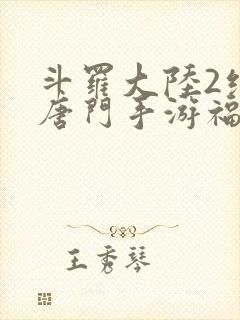 斗羅大陸2
唐門手游福
王秀琴